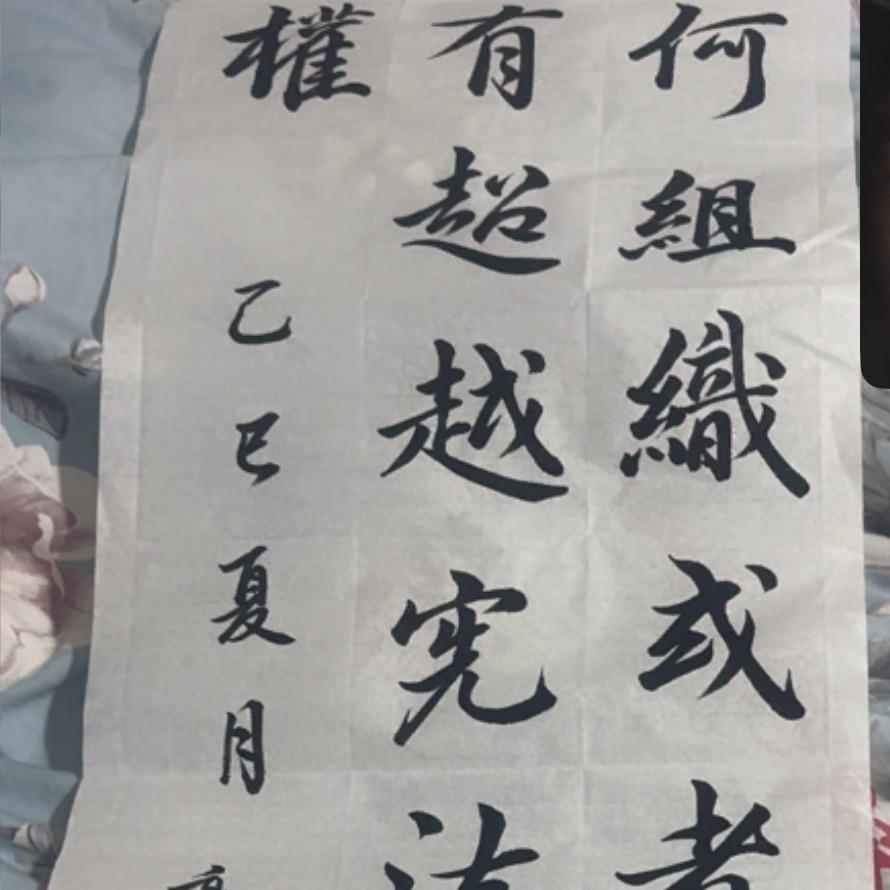 何組織或者
有超越宪法
權
乙巳夏月